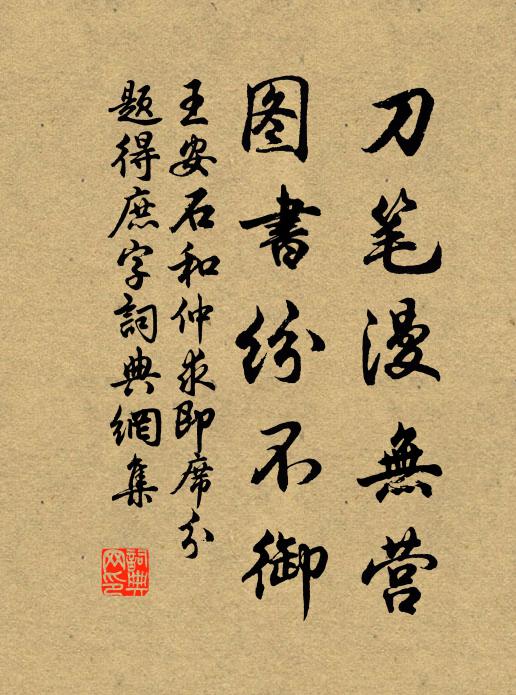 刀笔漫無营
图書纷不御
王安石和仲求即席分
题得庶字詞典網集
詞典
网印